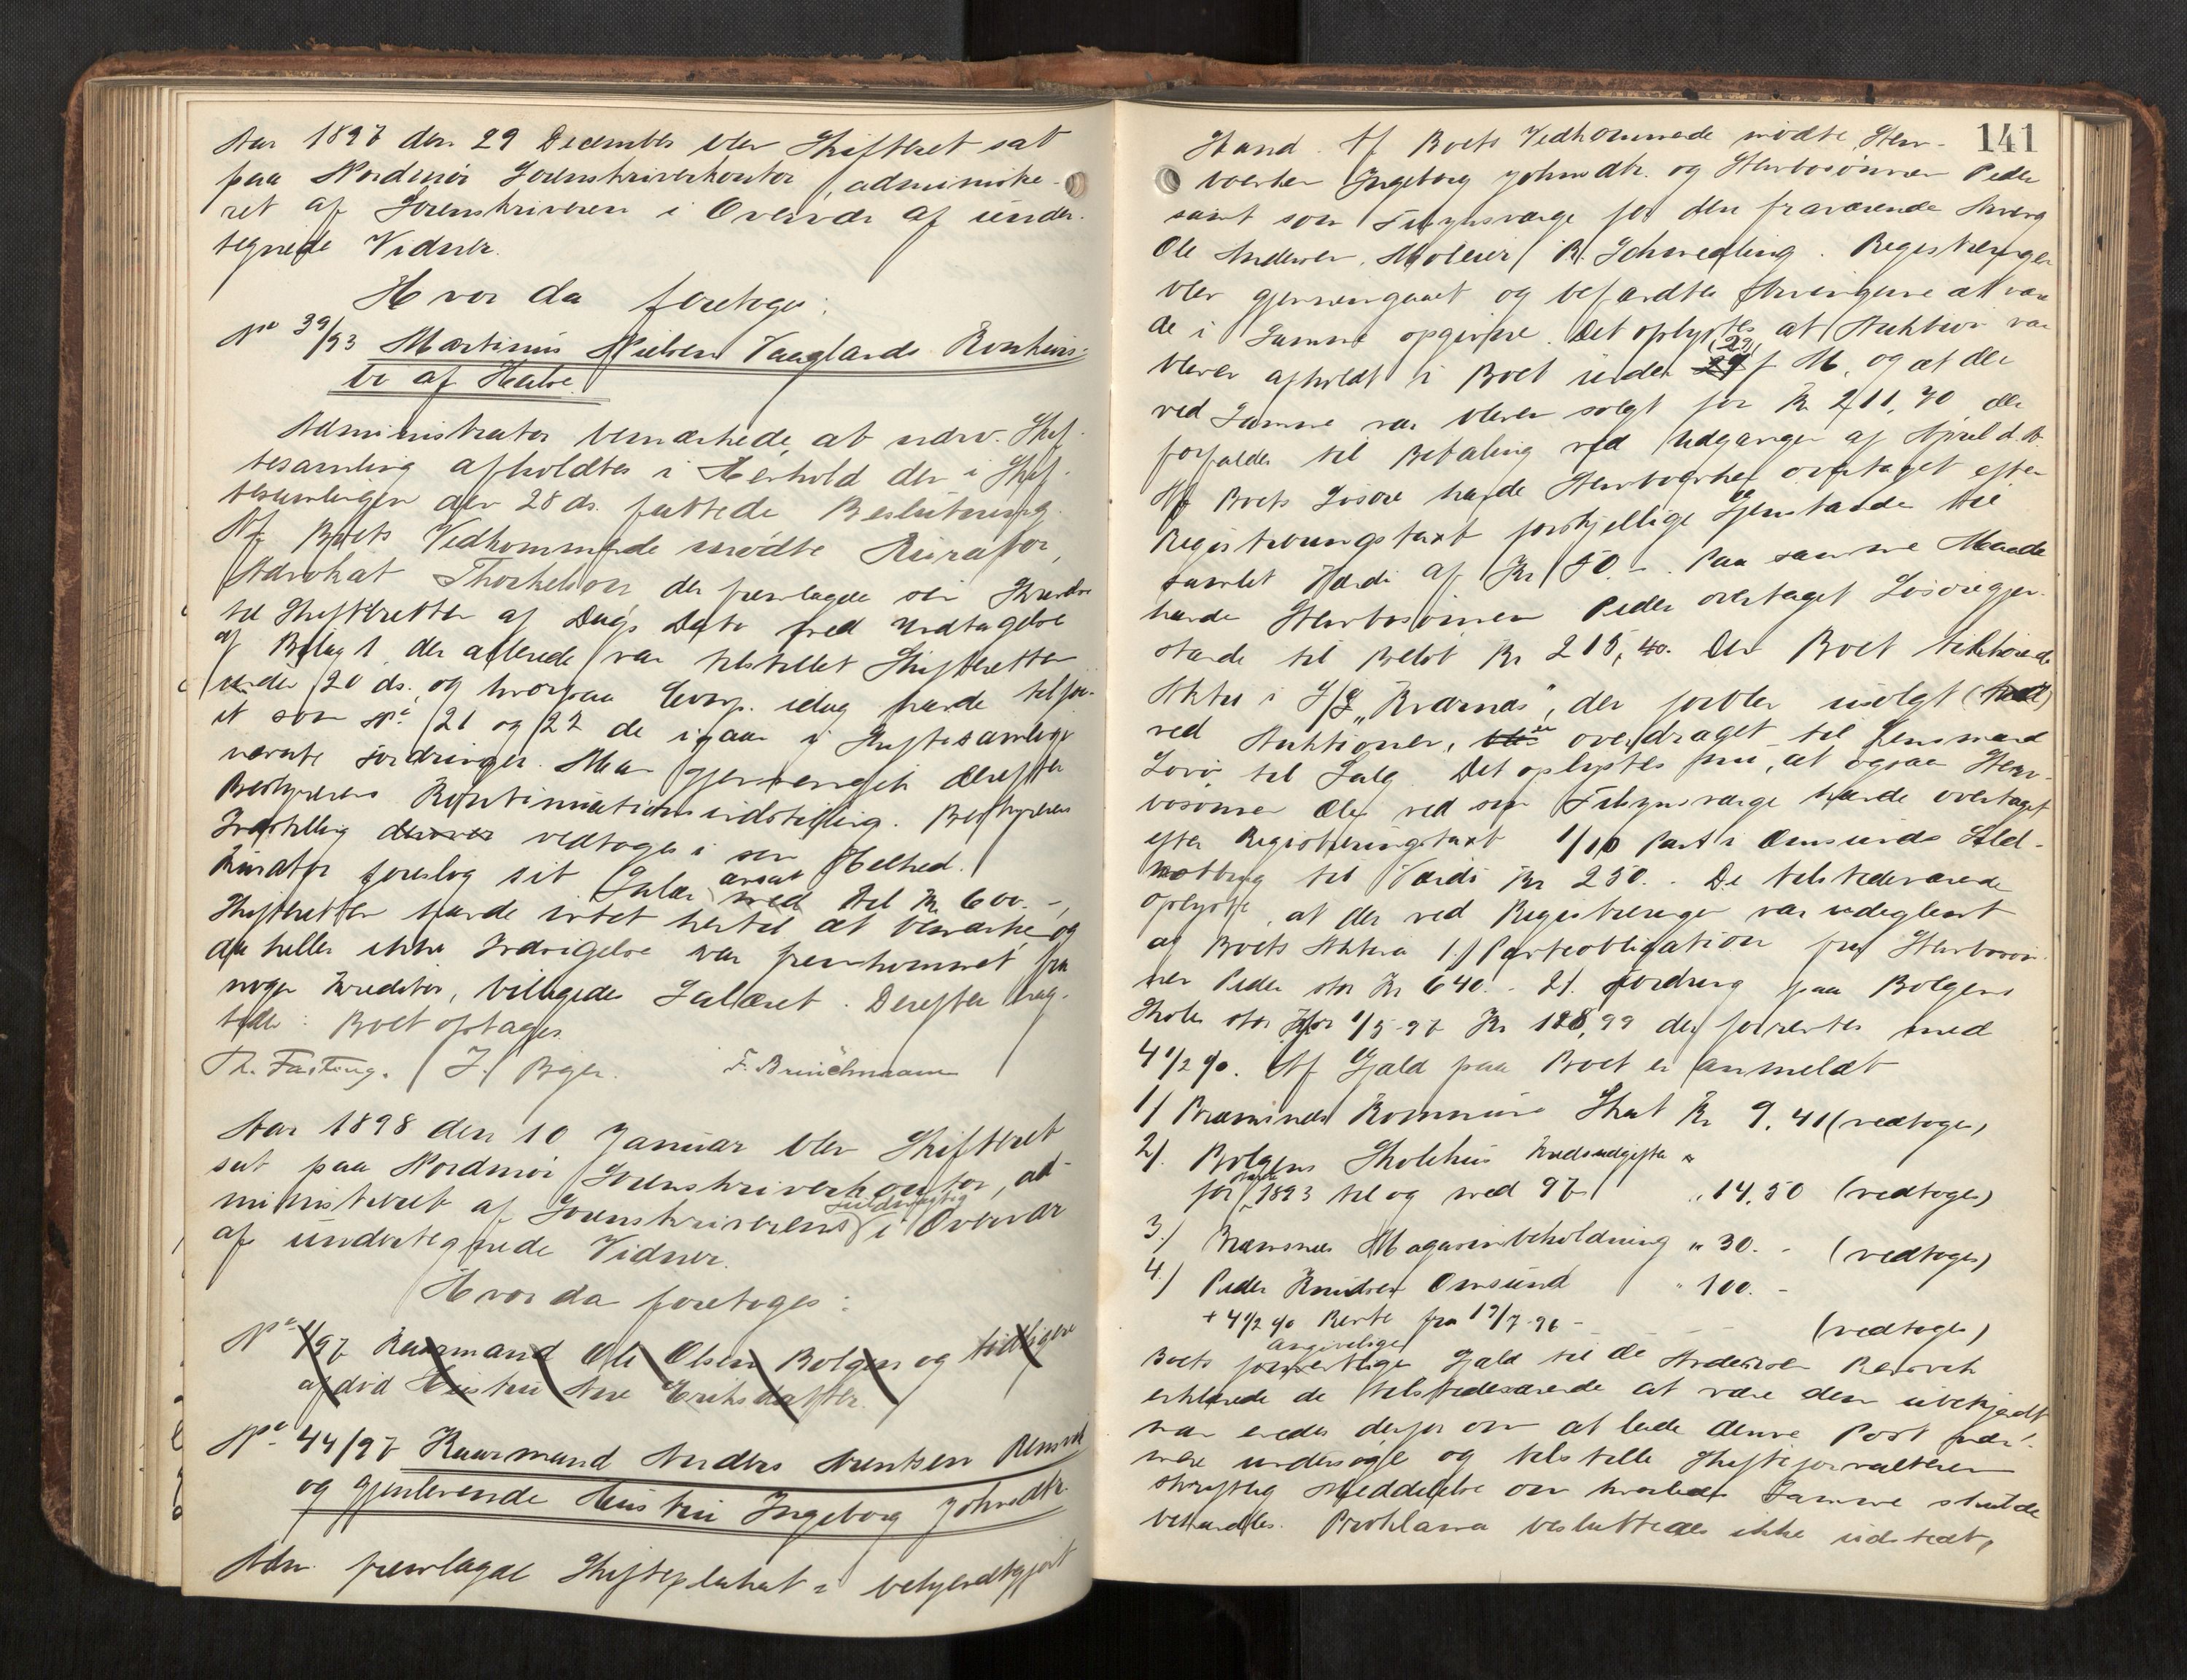 Aar 1897 den 29 December blev Skifteret sat
paa Nordmør Sorenskriverkontor, administre-
ret af Sorenskriveren i Overvær af under-
tegnede Vidner.
Hvor da foretoges:
No 39/93 Martinus Nielsen Vaaglands Konkurs-
bo af Halse
Administrator bemærkede, at nærv. Skif-
tesamling afholdtes i Henhold den i Skif-
tesamlingen den 28 ds. fattede Beslutning.
Af Boets Vedkommende mødte Kurator,
Advokat Thorkelson der fremlagde sin Skrivelse
til Skifteretten af Dags Dato med Undtagelse
af Bilag 1 der allerede var tilstillet Skifteretten
under 20 ds. og hvorpaa Comp. idag havde tilfø-
iet som No 21 og 22 de igaar i Skiftesamlingen
nævnte Fordringer. Man gjennemgik derefter
Bestyrerens Kontinuationsindstilling. Bestyrerens
Indstilling vedtoges i sin Helhed.
Kurator foreslog sit Salær ansat til Kr. 600.-,
Skifteretten havde intet hertil at bemærke og
da heller ikke Indsigelse var fremkommet fra
nogen Kreditor, bilagedes Salæret. Derefter
: Boet optages
Th. Fasting. J. Bøjer. F. Brüchmann
Aar 1898 den 10 Januar blev Skifteret
sat paa Nordmør Sorenskriverkontor, ad-
ministreret af Sorenskriverens Fuldmægtig i Overvær
af undertegnede Vidner.
Hvor da foretoges:
No 1/97 Kaarmand Ole Olsen Bolgen og tidligere
afdød Hustru Ane Eriksdatter.
No 44/97 Kaarmand Anders Arentsen Rensvik
og gjenlevende Hustru Ingeborg Johnsdtr.
Adm. fremlagde Skifteplakat i bekjendtgjort
141
Stand. Af Boets Vedkommende mødte Sterv-
boenken Ingeborg Johnsdtr. og Stervbosønnen Peder
samt som Tilsynsværge for den fraværende Arving
Ole Andersen, R. Schwedling. Registreringen
blev gjennemgaaet og befandtes Arvingerne at være
de i Samme opgivne. Det oplystes at Auktion var
bleven afholdt i Boet under 29 f. M. og at der
ved Samme var bleven solgt for Kr 211,70 der
forfalder til Betaling ved Udgangen af April d. A.
Af Boets Løsøre havde Stervboenken overtaget efter
Registreringstaxt forskjellige Gjenstande til
samlet Værdi af Kr 50.-. Paa samme Maade
havde Stervbosønnen Peder overtaget Løsøregjen-
stande til Beløb Kr 215,40. Den Boet tilhørende
Aktie i S/S "Kværnæs", der forblev usolgt
ved Auktionen, er overdraget til Lensmand
Sorø til Salg. Det oplystes nu, at ogsaa Sterv-
bosønnen Ole ved sin Tilsynsværge havde overtaget
efter Registreringstaxt 1/10 Part i Omsunds Sild-
notbrug til Værdi Kr 250.-. De tilstedeværende
oplyste, at der ved Registreringen var udeglemt
af Boets Aktiva 1/ Panteobligation fra Stervbosøn-
nen Peder stor Kr 640.-. 2/. Fordring paa Bolgens
Skole stor pr 1/5-97 Kr 128,99 der forrentes med
4 1/2 %. Af Gjæld paa Boet er anmeldt
1/ Bremsnæs Kommune Skat Kr 9,41 (vedtoges)
2/. Bolgens Skolehus Kredsudgifter
for 1893 til og med 97 " 14,50 (vedtoges)
3./ Bremsnæs Magasinbeholdning " 30.- (vedtoges)
4./ Peder Knudsen Omsund " 100.-
+ 4 1/2 % Rente fra 19/7-96 - (vedtoges)
Boets angivelige Gjæld til Andersen Rensvik
erklærede de tilstedeværende at være dem ubekjendt
man enedes derfor om at lade denne Post nær-
mere undersøge og tilstille Skifteforvalteren
skriftlig Meddelelse om hvorledes Samme skulde
behandles. Proklama besluttedes ikke udstedt,